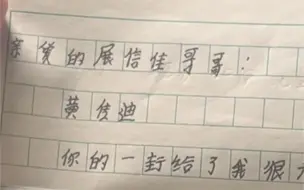 亲爱的展信佳哥哥：
黄 迪
你的一封给了我很